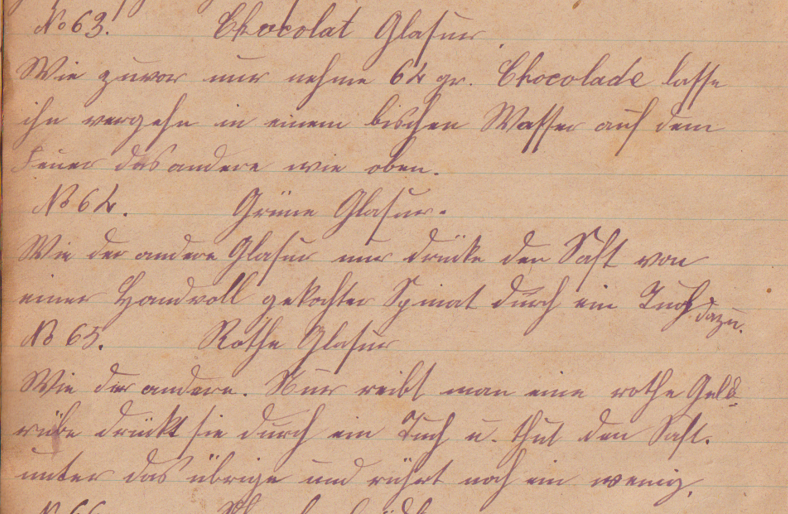 No 63. Chocolat Glasur
Wie zuvor nur nehme 64 gr. Chocolade lasse
ihn vergehn in einem bischen Wasser auf dem
Feuer das andere wie oben.
No 64. Grüne Glasur.
Wie der andere Glasur nur drücke den Saft von
einer Handvoll gekochter Spinat durch ein Tuch dazu.
No 65. Rothe Glasur
Wie der andere. Nur reibt man eine rothe Gelb-
rübe drückt sie durch ein Tuch u. thut den Saft.
unter das übrige und rührt noch ein wenig.
No 66.